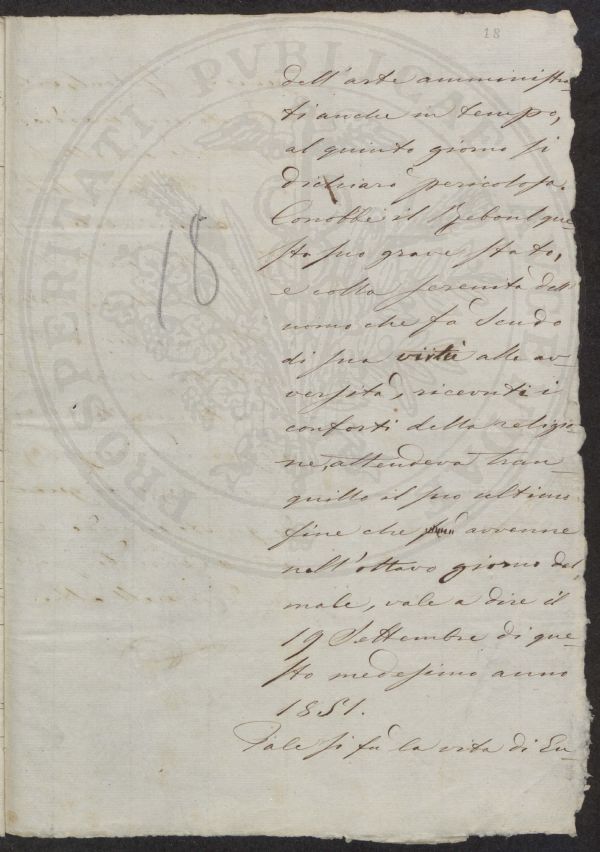 18
dell'arte amministra-
ti anche in tempo,
al quinto giorno si
dichiarò pericolosa.
Conobbe il Reboul que
sto suo grave stato,
e colla serenità dell'
uomo che fà scudo
di sua virtù alle av-
versità, ricevuti i
conforti della religio-
ne, attendeva tran
quillo il suo ultimo
fine che avvenne
nell'ottavo giorno del
male, vale a dire il
19 Settembre di que-
sto medesimo anno
1851.
Tale si fù la vita di Eu-
18
PROSPERITATI PVBLICAE AVGENDAE